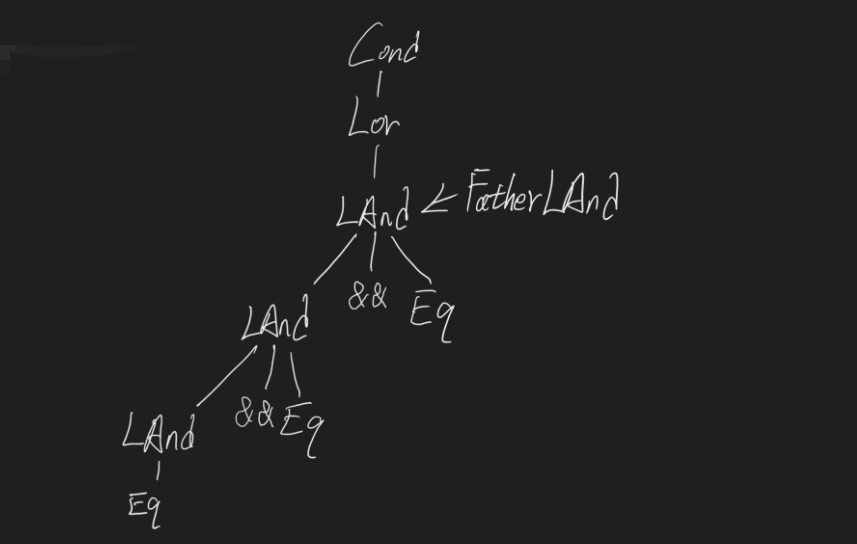 Cond
Lor
LAnd ← FatherLAnd
LAnd && Eq
LAnd && Eq
Eq